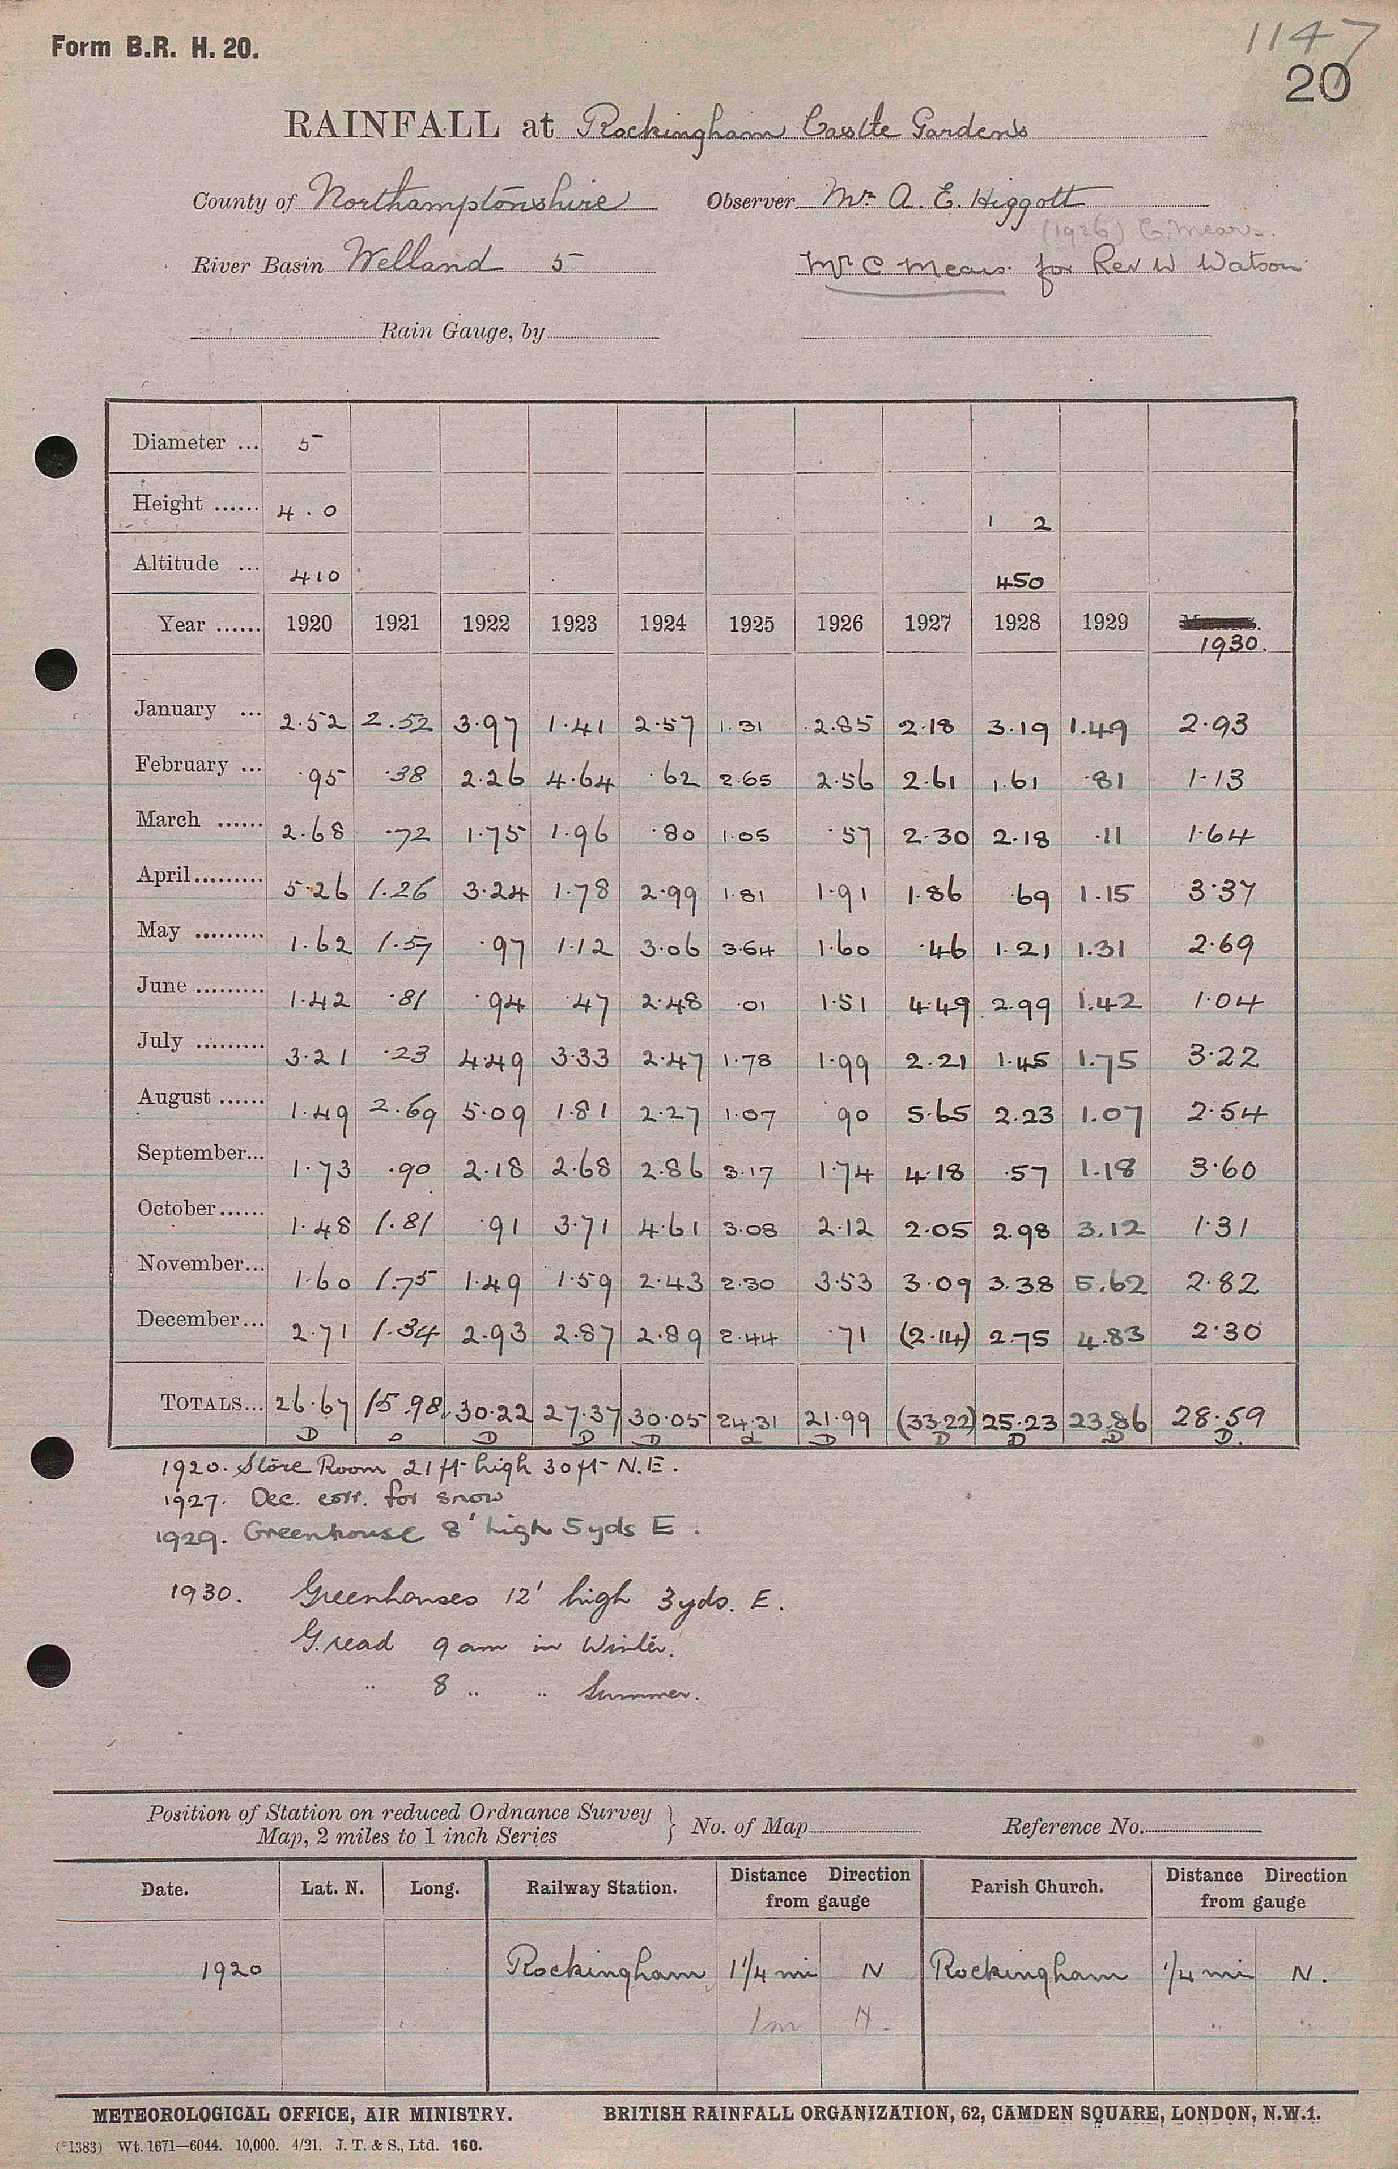 Form B.R. H. 20.
1147
20
RAINFALL at Rockingham Castle Gardens
County of Northamptonshire Observer Mr. A. E. Higgott
(1926) C. Mears.
River Basin Welland 5 Mr C Mears. for Rev W Watson
Rain Gauge, by
Diameter ... 5
Height ...... 4.0 1 2
Altitude ... 410 450
Year ...... 1920 1921 1922 1923 1924 1925 1926 1927 1928 1929
1930.
January ... 2.52 2.52 3.97 1.41 2.57 1.31 2.85 2.18 3.19 1.49 2.93
February ... .95 .38 2.26 4.64 .62 2.65 2.56 2.61 1.61 .81 1.13
March ...... 2.68 .72 1.75 1.96 .80 1.05 .57 2.30 2.18 .11 1.64
April......... 5.26 1.26 3.24 1.78 2.99 1.81 1.91 1.86 .69 1.15 3.37
May ......... 1.62 1.57 .97 1.12 3.06 3.64 1.60 .46 1.21 1.31 2.69
June ......... 1.42 .81 .94 .47 2.48 .01 1.51 4.49 2.99 1.42 1.04
July ......... 3.21 .23 4.49 3.33 2.47 1.78 1.99 2.21 1.45 1.75 3.22
August ...... 1.49 2.69 5.09 1.81 2.27 1.07 .90 5.65 2.23 1.07 2.54
September... 1.73 .90 2.18 2.68 2.86 3.17 1.74 4.18 .57 1.18 3.60
October...... 1.48 1.81 .91 3.71 4.61 3.08 2.12 2.05 2.98 3.12 1.31
November... 1.60 1.75 1.49 1.59 2.43 2.30 3.53 3.09 3.38 5.62 2.82
December... 2.71 1.34 2.93 2.87 2.89 2.44 .71 (2.14) 2.75 4.83 2.30
TOTALS... 26.67 15.98 30.22 27.37 30.05 24.31 21.99 (33.22) 25.23 23.86 28.59
D D D D d D D D D D.
1920. Store Room 21 ft high 30 ft N.E.
1927. Dec. corr. for snow
1929. Greenhouse 8' high 5 yds E.
1930. Greenhouses 12' high 3 yds. E.
G. read 9 am in Winter.
" 8 " " Summer.
Position of Station on reduced Ordnance Survey
Map, 2 miles to 1 inch Series } No. of Map Reference No.
Date. Lat. N. Long. Railway Station. Distance Direction from gauge Parish Church. Distance Direction from gauge
1920 Rockingham 1 1/4 mi N Rockingham 1/4 mi N.
1m N. " "
METEOROLOGICAL OFFICE, AIR MINISTRY. BRITISH RAINFALL ORGANIZATION, 62, CAMDEN SQUARE, LONDON, N.W.1.
(*1383) Wt. 1671—6044. 10,000. 4/21. J. T. & S., Ltd. 160.